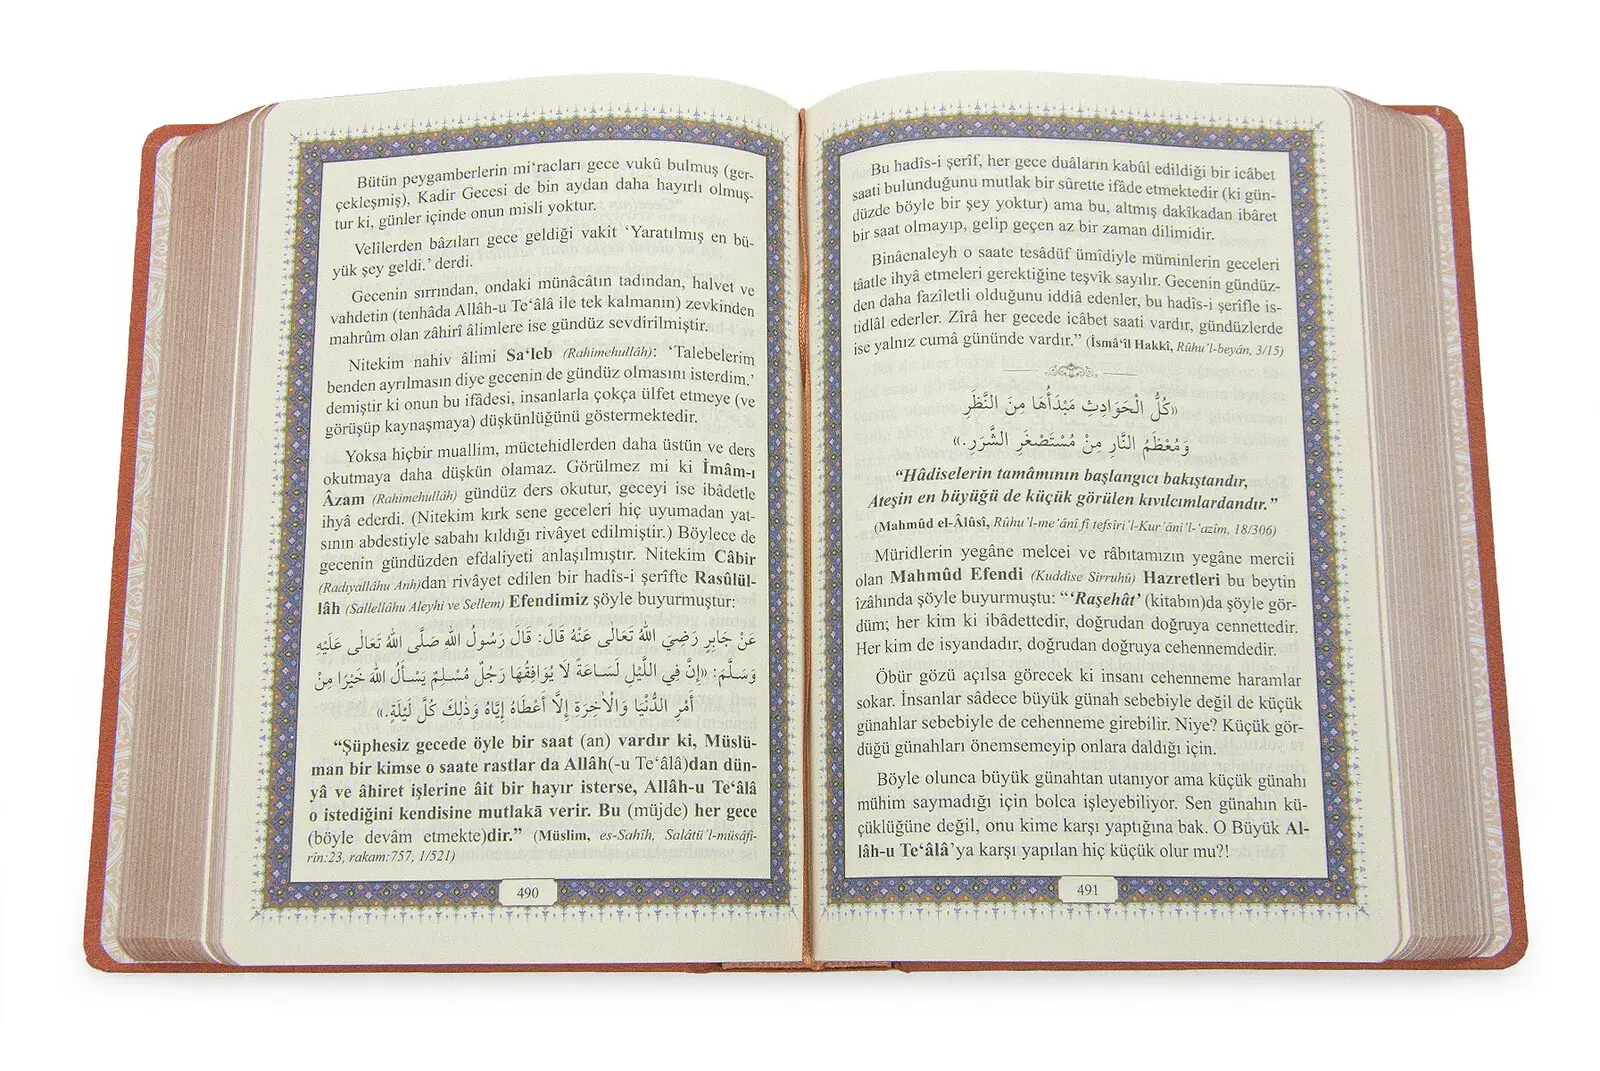 Bütün peygamberlerin mi‘racları gece vukû bulmuş (ger-
çekleşmiş), Kadir Gecesi de bin aydan daha hayırlı olmuş-
tur ki, günler içinde onun misli yoktur.
Velîlerden bâzıları gece geldiği vakit ‘Yaratılmış en bü-
yük şey geldi.’ derdi.
Gecenin sırrından, ondaki münâcâtın tadından, halvet ve
vahdetin (tenhâda Allâh-u Te‘âlâ ile tek kalmanın) zevkinden
mahrûm olan zâhirî âlimlere ise gündüz sevdirilmiştir.
Nitekim nahiv âlimi Sa‘leb (Rahimehullâh): ‘Talebelerim
benden ayrılmasın diye gecenin de gündüz olmasını isterdim.’
demiştir ki onun bu ifâdesi, insanlarla çokça ülfet etmeye (ve
görüşüp kaynaşmaya) düşkünlüğünü göstermektedir.
Yoksa hiçbir muallim, müctehidlerden daha üstün ve ders
okutmaya daha düşkün olamaz. Görülmez mi ki İmâm-ı
Âzam (Rahimehullâh) gündüz ders okutur, geceyi ise ibâdetle
ihyâ ederdi. (Nitekim kırk sene geceleri hiç uyumadan yat-
sının abdestiyle sabahı kıldığı rivâyet edilmiştir.) Böylece de
gecenin gündüzden efdaliyeti anlaşılmıştır. Nitekim Câbir
(Radıyallâhu Anh)dan rivâyet edilen bir hadîs-i şerîfte Rasûlül-
lâh (Sallellâhu Aleyhi ve Sellem) Efendimiz şöyle buyurmuştur:
عَنْ جَابِرٍ رَضِيَ اللهُ تَعَالٰى عَنْهُ قَالَ: قَالَ رَسُولُ اللهِ صَلَّى اللهُ تَعَالٰى عَلَيْهِ
وَسَلَّمَ: «إِنَّ فِي اللَّيْلِ لَسَاعَةً لَا يُوَافِقُهَا رَجُلٌ مُسْلِمٌ يَسْأَلُ اللهَ خَيْرًا مِنْ
أَمْرِ الدُّنْيَا وَالْاٰخِرَةِ إِلَّا أَعْطَاهُ إِيَّاهُ وَذٰلِكَ كُلَّ لَيْلَةٍ.»
“Şüphesiz gecede öyle bir saat (an) vardır ki, Müslü-
man bir kimse o saate rastlar da Allâh(-u Te‘âlâ)dan dün-
yâ ve âhiret işlerine âit bir hayır isterse, Allâh-u Te‘âlâ
o istediğini kendisine mutlakā verir. Bu (müjde) her gece
(böyle devâm etmekte)dir.” (Müslim, es-Sahîh, Salâtü’l-müsâfi-
rîn:23, rakam:757, 1/521)
490
Bu hadîs-i şerîf, her gece duâların kabûl edildiği bir icâbet
saati bulunduğunu mutlak bir sûrette ifâde etmektedir (ki gün-
düzde böyle bir şey yoktur) ama bu, altmış dakîkadan ibâret
bir saat olmayıp, gelip geçen az bir zaman dilimidir.
Binâenaleyh o saate tesâdüf ümîdiyle müminlerin geceleri
tâatle ihyâ etmeleri gerektiğine teşvîk sayılır. Gecenin gündüz-
den daha fazîletli olduğunu iddiâ edenler, bu hadîs-i şerîfle is-
tidlâl ederler. Zîrâ her gecede icâbet saati vardır, gündüzlerde
ise yalnız cumâ gününde vardır.” (İsmâ‘îl Hakkî, Rûhu’l-beyân, 3/15)
«كُلُّ الْحَوَادِثِ مَبْدَأُهَا مِنَ النَّظَرِ
وَمُعْظَمُ النَّارِ مِنْ مُسْتَصْغَرِ الشَّرَرِ.»
“Hâdiselerin tamâmının başlangıcı bakıştandır,
Ateşin en büyüğü de küçük görülen kıvılcımlardandır.”
(Mahmûd el-Âlûsî, Rûhu’l-me‘ânî fî tefsîri’l-Kur’âni’l-‘azîm, 18/306)
Müridlerin yegâne melcei ve râbıtamızın yegâne mercii
olan Mahmûd Efendi (Kuddise Sirruhû) Hazretleri bu beytin
îzâhında şöyle buyurmuştu: “‘Raşehât’ (kitabın)da şöyle gör-
düm; her kim ki ibâdettedir, doğrudan doğruya cennettedir.
Her kim de isyandadır, doğrudan doğruya cehennemdedir.
Öbür gözü açılsa görecek ki insanı cehenneme haramlar
sokar. İnsanlar sâdece büyük günah sebebiyle değil de küçük
günahlar sebebiyle de cehenneme girebilir. Niye? Küçük gör-
düğü günahları önemsemeyip onlara daldığı için.
Böyle olunca büyük günahtan utanıyor ama küçük günahı
mühim saymadığı için bolca işleyebiliyor. Sen günahın kü-
çüklüğüne değil, onu kime karşı yaptığına bak. O Büyük Al-
lâh-u Te‘âlâ’ya karşı yapılan hiç küçük olur mu?!
491